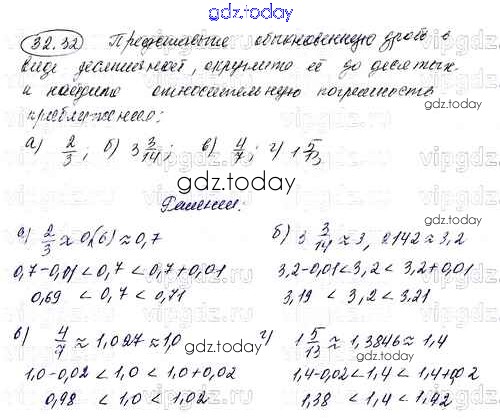 gdz.today
32.32 Представьте обыкновенную дробь в
виде десятичной, округлите её до десятых
и найдите относительную погрешность
приближения:
а) 2/3; б) 3 3/14; в) 4/7; г) 1 5/13
gdz.today
Решение.
а) 2/3 ≈ 0,(6) ≈ 0,7
0,7-0,01 < 0,7 < 0,7+0,01
0,69 < 0,7 < 0,71
б) 3 3/14 ≈ 3,2142 ≈ 3,2
3,2-0,01 < 3,2 < 3,2+0,01
3,19 < 3,2 < 3,21
в) 4/7 ≈ 1,027 ≈ 1,0
1,0-0,02 < 1,0 < 1,0+0,02
0,98 < 1,0 < 1,02
г) 1 5/13 ≈ 1,3846 ≈ 1,4
1,4-0,02 < 1,4 < 1,4+0,02
1,38 < 1,4 < 1,42
gdz.today
gdz.today
gdz.today
gdz.today